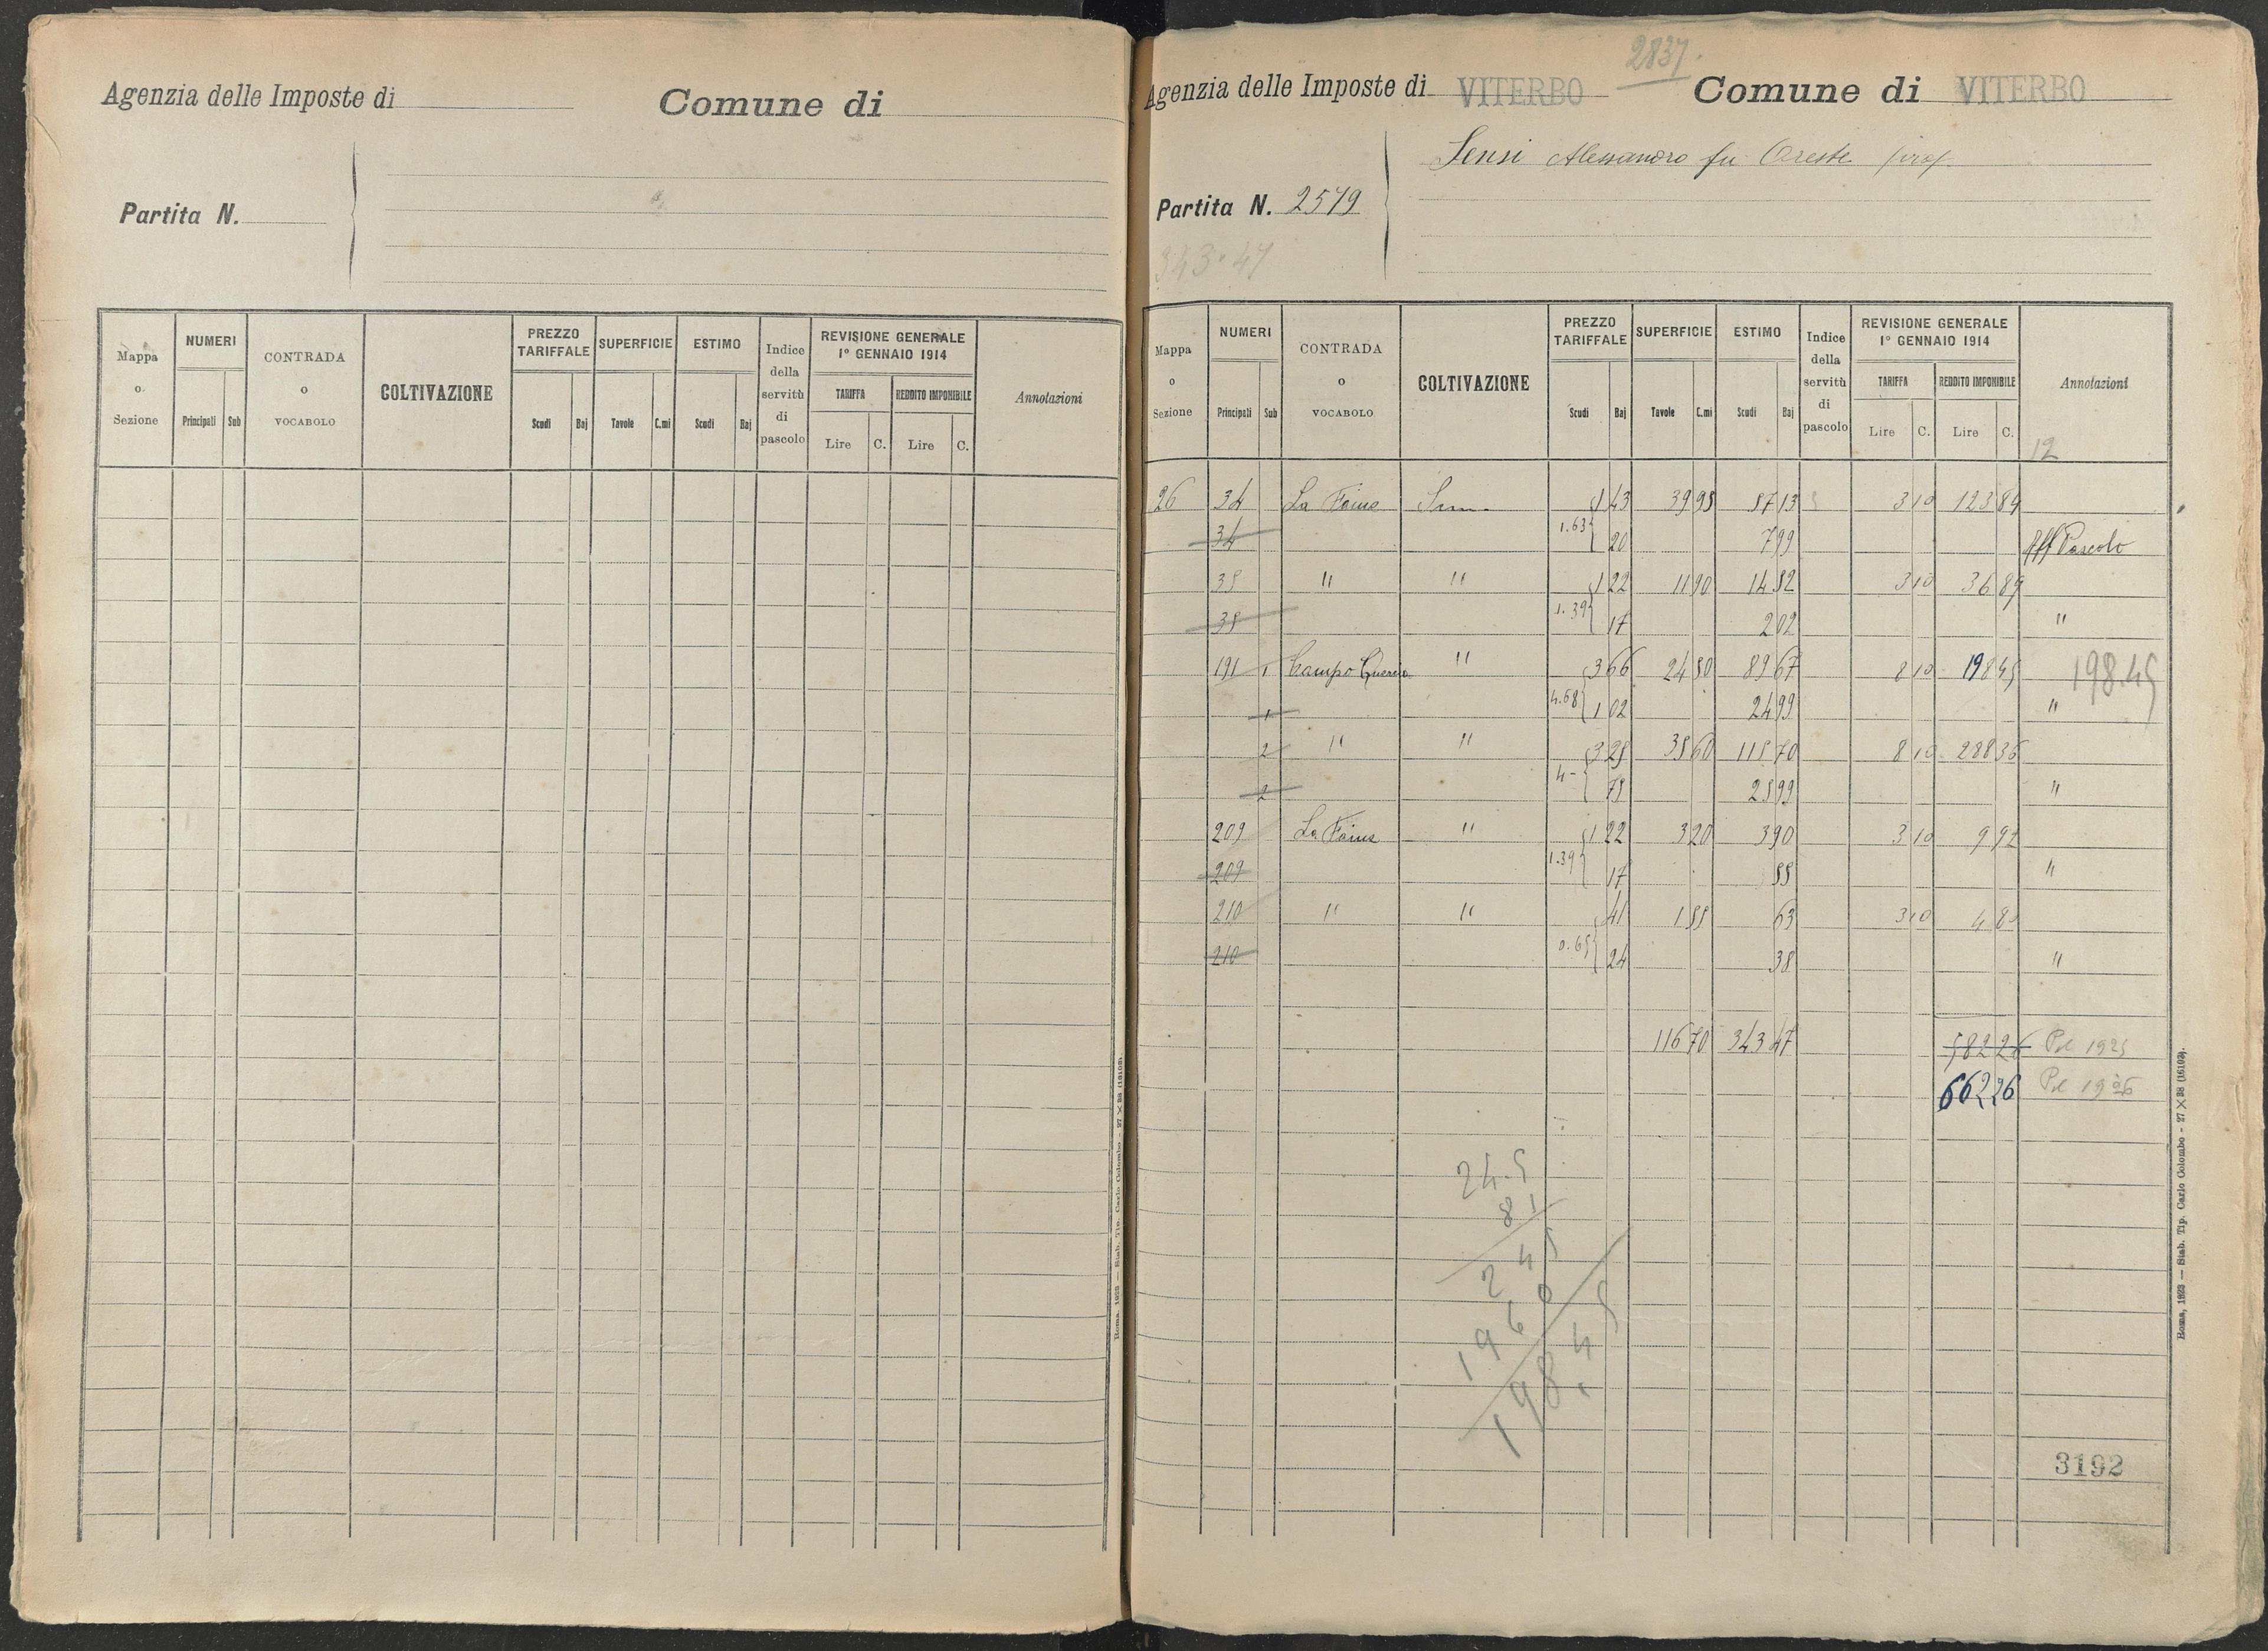 Agenzia delle Imposte di
Comune di
Partita N.
Mappa o Sezione
NUMERI
Principali Sub
CONTRADA o VOCABOLO
COLTIVAZIONE
PREZZO TARIFFALE
Scudi Baj
SUPERFICIE
Tavole C.mi
ESTIMO
Scudi Baj
Indice della servitù di pascolo
REVISIONE GENERALE 1° GENNAIO 1914
TARIFFA
Lire C.
REDDITO IMPONIBILE
Lire C.
Annotazioni
Roma, 1923 — Stab. Tip. Carlo Colombo - 27 × 38 (16102).
2837.
Agenzia delle Imposte di VITERBO Comune di VITERBO
Sensi Alessandro fu Oreste prop.
Partita N. 2579
343.47
Mappa o Sezione
NUMERI
Principali Sub
CONTRADA o VOCABOLO
COLTIVAZIONE
PREZZO TARIFFALE
Scudi Baj
SUPERFICIE
Tavole C.mi
ESTIMO
Scudi Baj
Indice della servitù di pascolo
REVISIONE GENERALE 1° GENNAIO 1914
TARIFFA
Lire C.
REDDITO IMPONIBILE
Lire C.
Annotazioni
12
26 34 La Faine Sem. 1 43 39 95 57 13 3 10 123 84
34 1.63 20 7 99 Pascolo
35 " " 1 22 11 90 14 52 3 10 36 89
35 1.39 17 2 02 "
191 1 Campo Quercio " 3 66 24 50 89 67 8 10 198 45 198.45
1 4.68 1 02 24 99 "
2 " " 3 25 35 60 115 70 8 10 288 36
2 4- 75 25 99 "
209 La Faine " 1 22 3 20 3 90 3 10 9 92
209 1.39 17 55 "
210 " " 41 1 55 63 3 10 4 80
210 0.65 24 38 "
116 70 343 47 582 26 Pel 1925
662 26 Pel 1926
24.5
81
245
1960
198.45
3192
Roma, 1923 — Stab. Tip. Carlo Colombo - 27 × 38 (16102).